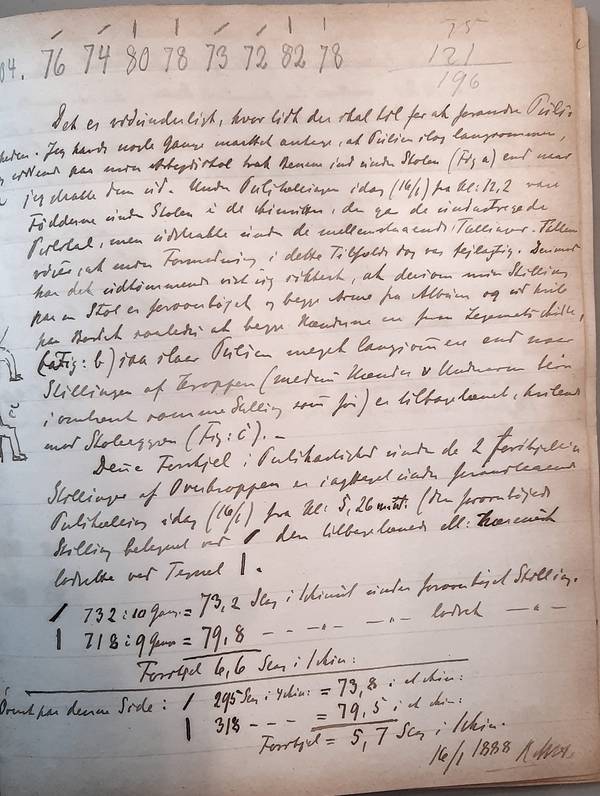 04. 76 74 80 78 73 72 82 78
75
121
196
Det er vidunderligt, hvor lidt der skal til for at forandre Puls-
heden. Jeg havde nogle Gange mærket antage, at Pulsen slog langsommere,
naar min Arbejdsstol trak Benene ind under Stolen (Fig a) end naar
jeg strakte dem ud. Under Pulstællingen idag (16/1) fra Kl: 12,2 vare
Fødderne under Stolen i de Minutter, der gav de understregede
Pulstal, men udstrakte under de mellemstaaende Talliaver. Tallene
viser, at min Formodning i dette Tilfælde dog var fejlagtig. Derimod
har det udtømmende vist sig rigtigt, at dersom min Stilling
paa en Stol er foroverbøjet og begge Arme fra Albuen og ud hvile
paa Bordet saaledes at begge Hænderne ere foran Legemets Midte,
(Fig: b) saa slaar Pulsen meget langsommere end naar
Stillingen af Kroppen (medens Hænder & Underarm blive
i omtrent samme Stilling som før) er tilbagelænet, hvilende
mod Stoleryggen (Fig: c). –
Denne Forskjel i Pulshastighed under de 2 forskjellige
Stillinger af Overkroppen er iagttaget under foranstaaende
Pulstælling idag (16/1) fra Kl: 5,26 mitt: (den foroverbøjede
Stilling betegnet ved / den tilbagelænede ell: nærmest
lodrette ved Tegnet |.
/ 732 : 10 Gange = 73,2 Slag i 1 Minut under foroverbøjet Stilling.
| 718 : 9 Gange = 79,8 – – – " – – " – lodret – " –
Forskjel 6,6 Slag i 1 Min:
Øverst paa denne Side: / 295 Slag i 4 Min: = 73,8 i et Min:
| 318 – – – = 79,5 i et Min:
Forskjel = 5,7 Slag i 1 Min.
16/1 1888